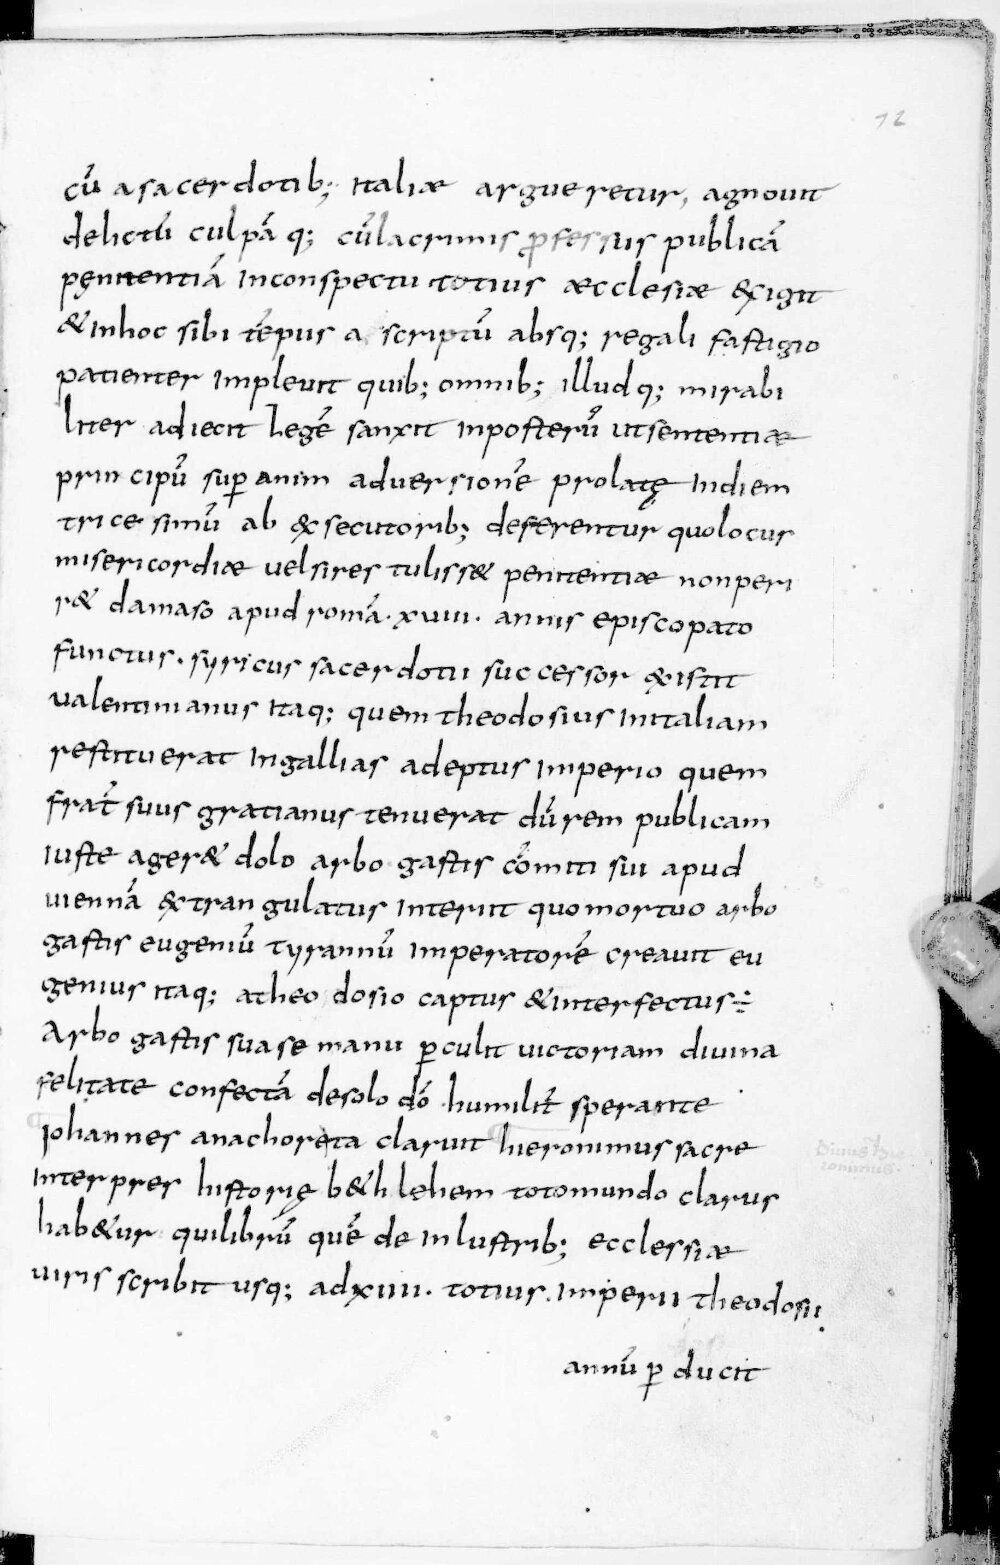 72
cū asacerdotib; italiæ argueretur, agnouit
delictū culpāq; cūlacrimis professus publicā
pęnitentiā inconspectu totius æcclesiæ exigit
&inhoc sibi tēpus ascriptū absq; regali fastigio
patienter impleuit quib; omnib; illudq; mirabi
liter adiecit legē sanxit inposterū utsententiæ
principū superanim aduersionē prolatę indiem
tricesimū ab exsecutorib; deferentur quolocur
misericordiæ uelsires tuliss& penitentiæ nonperi
r& damaso apud romā · xuiii · annis episcopato
functus · syricus sacerdotii successor existit
ualentinianus itaq; quem theodosius initaliam
restituerat ingallias adeptus imperio quem
frat̄ suus gratianus tenuerat dūrem publicam
iuste ager& dolo arbogastis cōmiti sui apud
uiennā extrangulatus interiit quomortuo arbo
gastis eugeniū tyrannū imperatorē creauit eu
genius itaq; atheodosio captus &interfectus
Arbogastis suase manu ꝑculit uictoriam diuina
felitate confectā desolo dō humilit̄ sperante
Iohannes anachoreta claruit hieronimus sacre
interpres historię b&hlehem totomundo clarus
hab&ur quilibrū quē de inlustrib; ecclessiæ
uiris scribit usq; adxiiii · totius imperii theodosii
annū ꝑducit